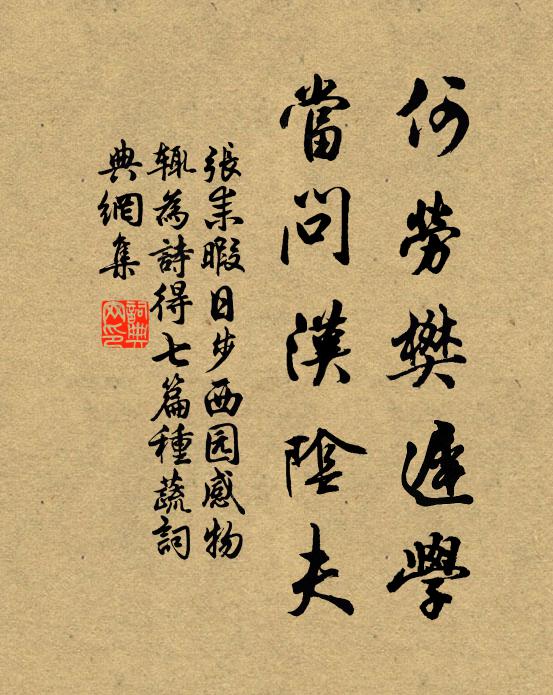 何勞樊遲學
當問漢陰夫
張耒暇日步西园感物
輒為詩得七篇種蔬詞
典網集
詞典
网印